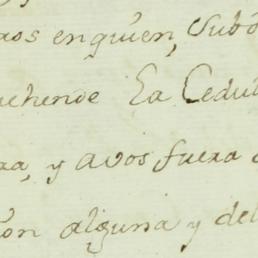 ros enquien, Subd
rehende La Cedul
ra, y avos fuera d
ón alguna y del